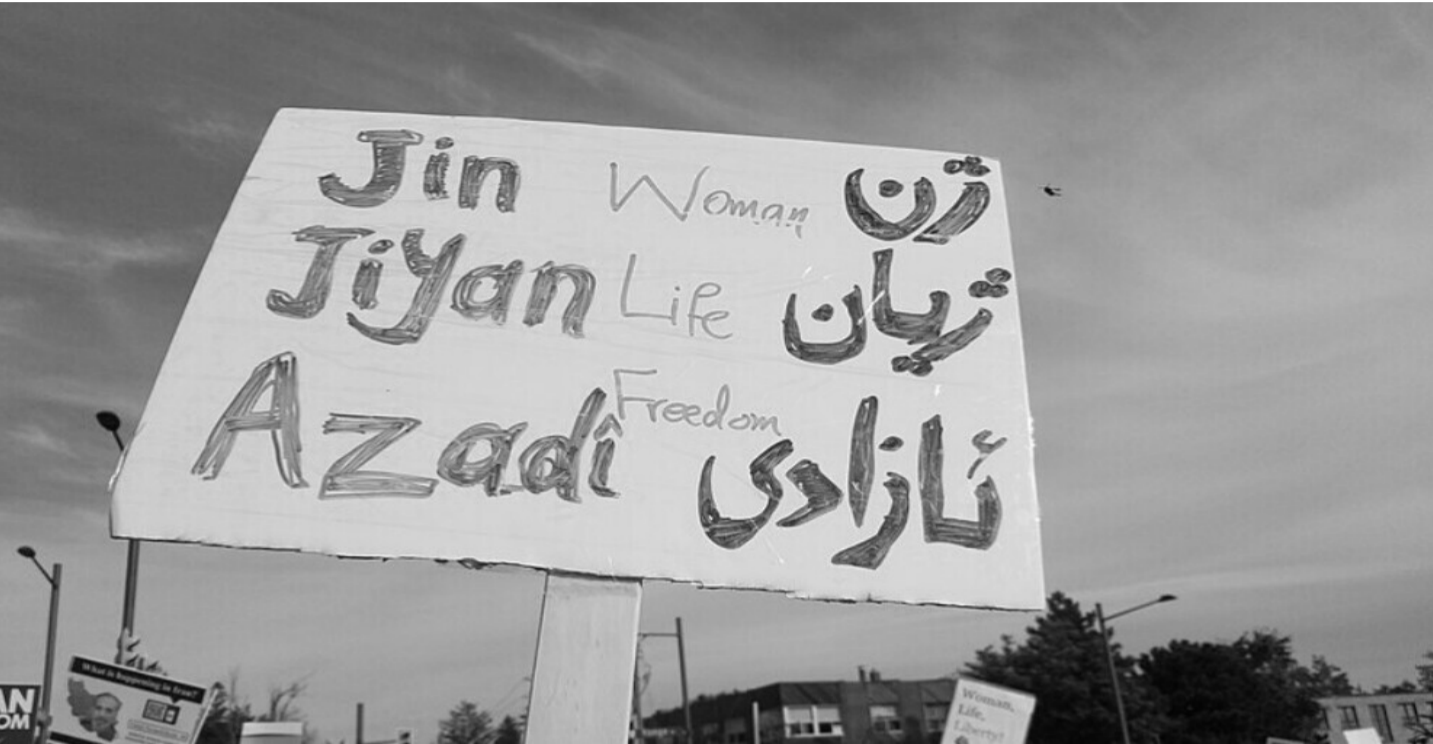 Jin Woman ژن
Jiyan Life ژیان
Azadî Freedom ئازادی
What is happening in Iran?
Woman,
Life,
Liberty!
AN
OM